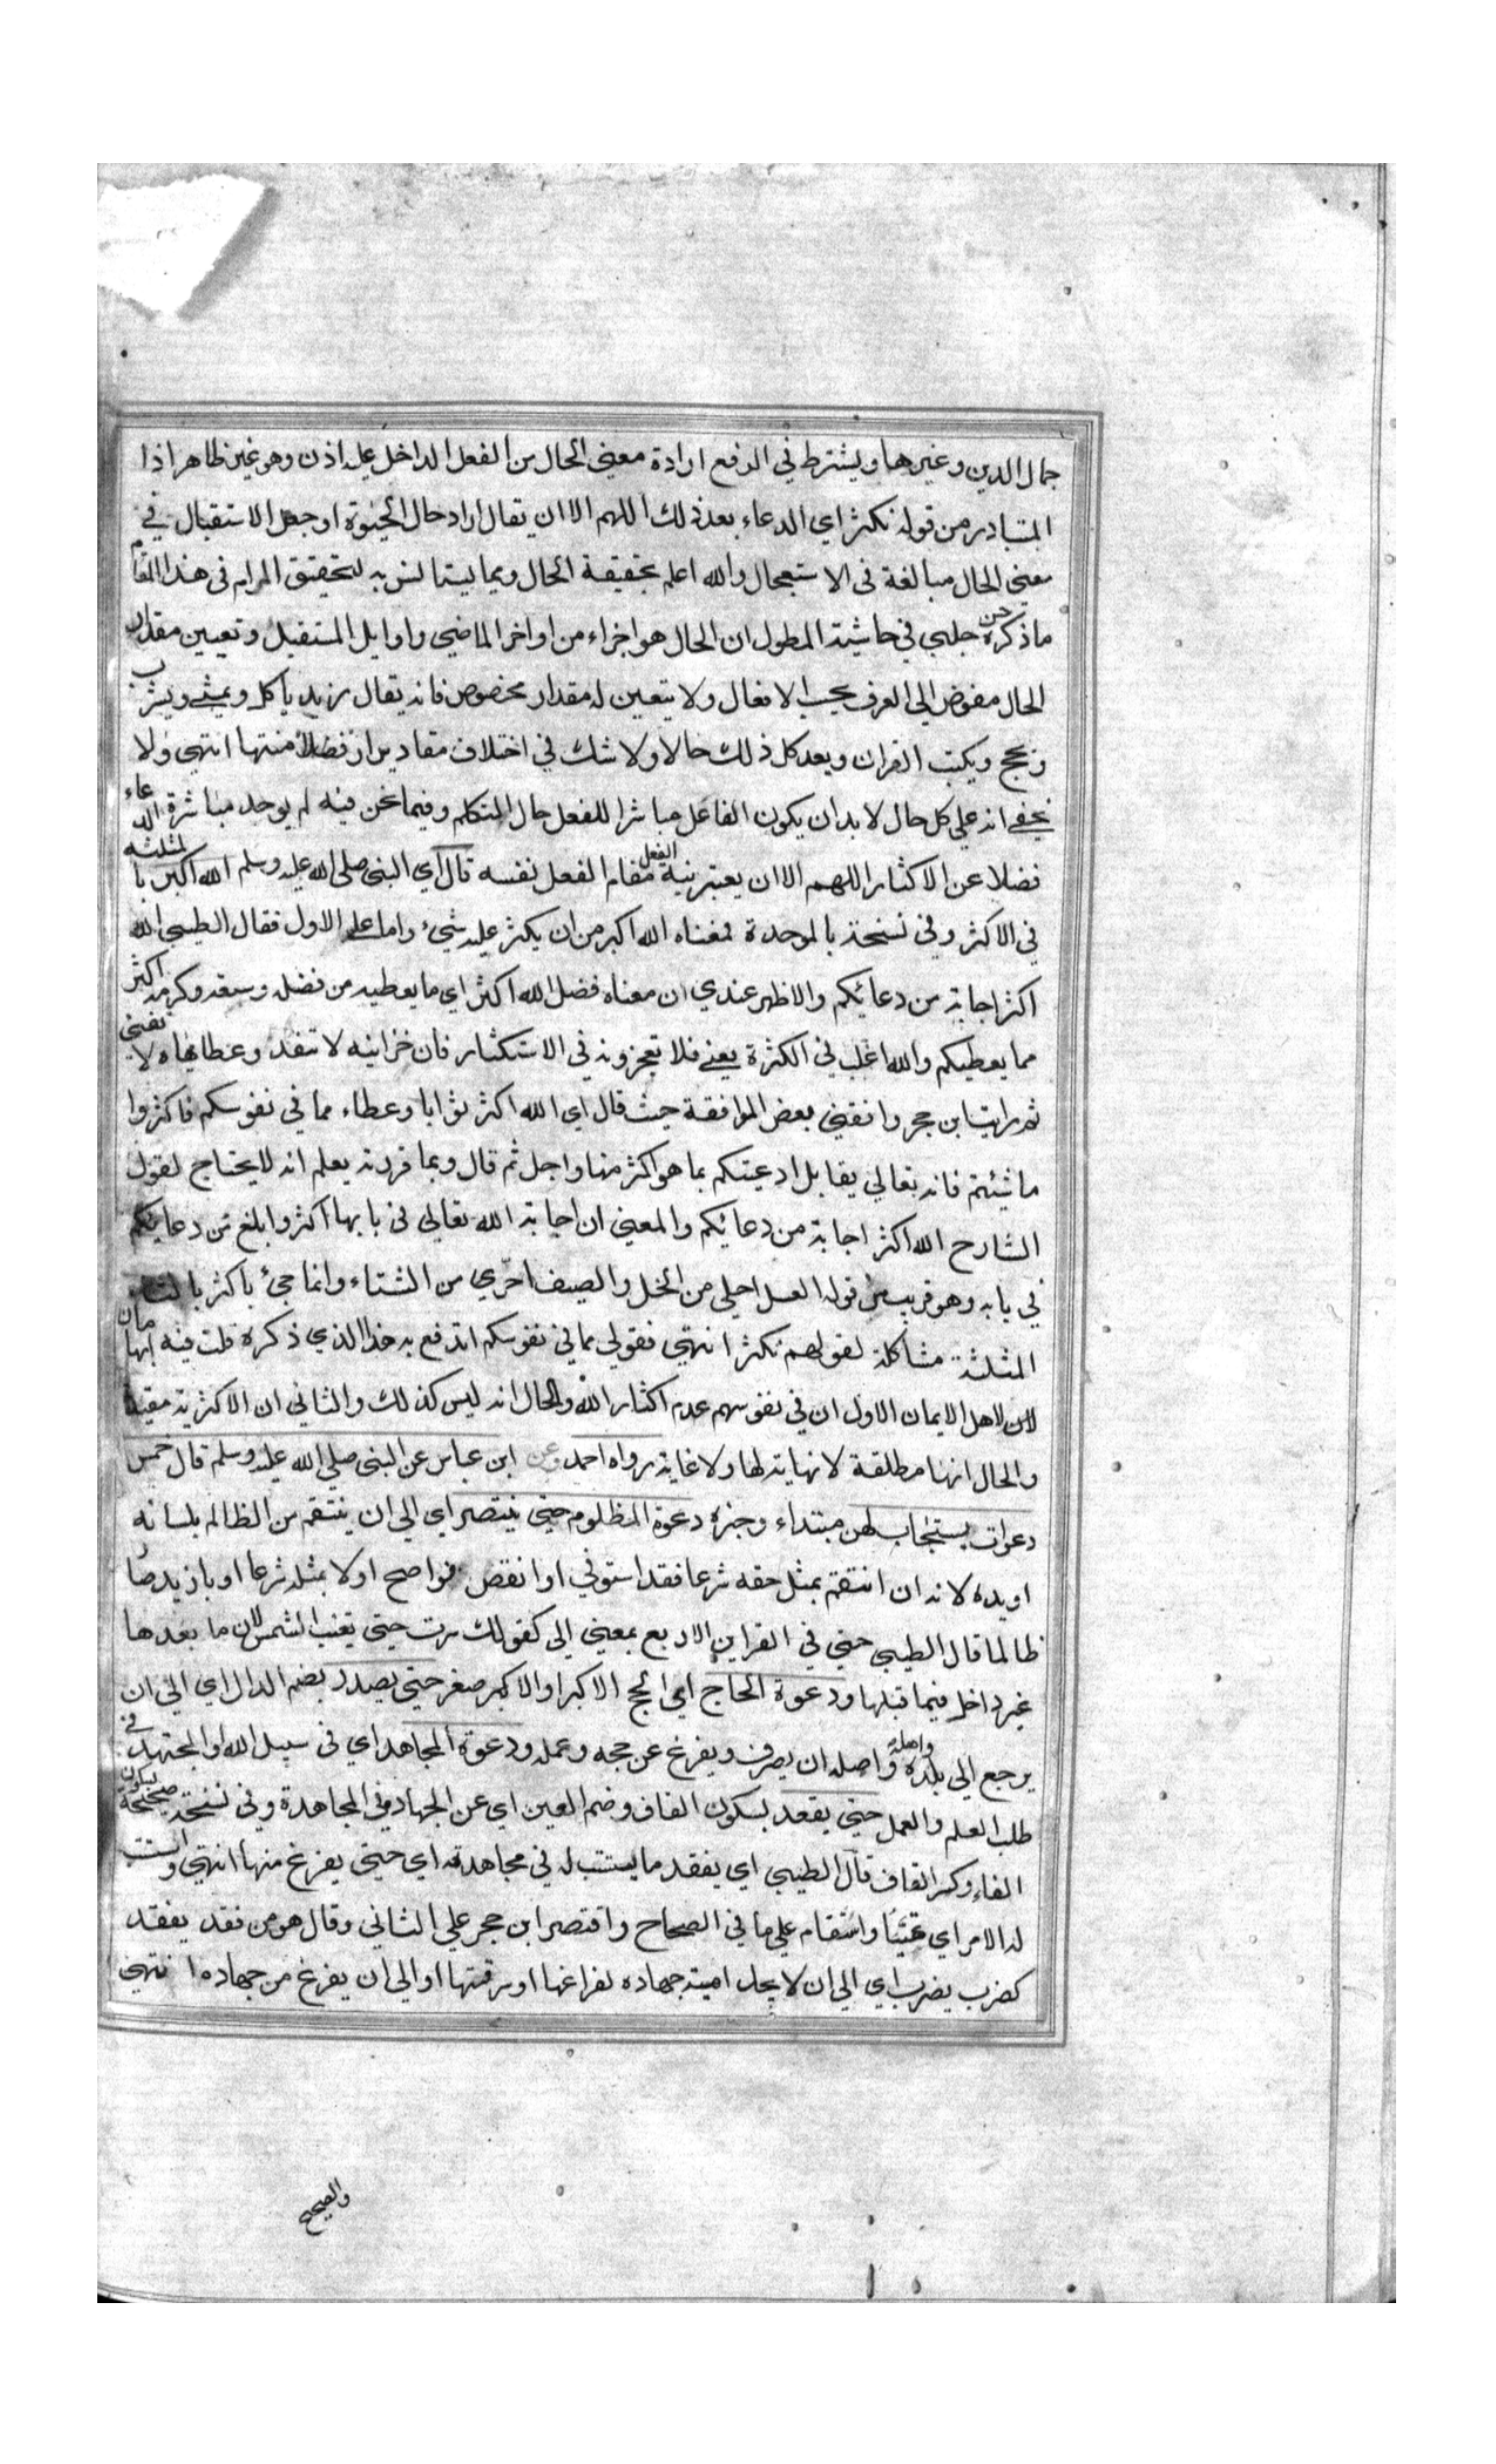 جمال الدين وغيرها ويشترط في الرفع ارادة معنى الحال من الفعل الداخل عليه اذن وهو غير ظاهر اذا
المتبادر من قوله نكثر اي الدعاء بعد ذلك اللهم الا ان يقال اراد حال الحيوة او جعل الاستقبال في
معنى الحال مبالغة في الاستعجال والله اعلم بحقيقة الحال ومما يستانس به لتحقيق المرام في هذا المقام
ما ذكره حسن جلبي في حاشية المطول ان الحال هو اجزاء من اواخر الماضي واوايل المستقبل وتعيين مقدار
الحال مفوض الى العرف بحسب الافعال ولا يتعين له مقدار مخصوص فانه يقال زيد ياكل ويمشي ويشرب
ويحج ويكتب القران ويعد كل ذلك حالا ولا شك في اختلاف مقادير ازمنتها انتهى ولا
يخفى انه على كل حال لا بد ان يكون الفاعل مباشرا للفعل حال التكلم وفيما نحن فيه لم يوجد مباشرة الدعاء
فضلا عن الاكثار اللهم الا ان يعتبر نية الفعل مقام الفعل نفسه قال اي النبي صلى الله عليه وسلم الله اكثر بالمثلثة
في الاكثر وفي نسخة بالموحدة فمعناه الله اكبر من ان يكثر عليه شيء واما على الاول فقال الطيبي الله
اكثر اجابة من دعائكم والاظهر عندي ان معناه فضل الله اكثر اي ما يعطيه من فضله وسعة وكرمه اكثر
مما يعطيكم والله اغلب في الكثرة يعني فلا تعجزونه في الاستكثار فان خزاينه لا تنفد وعطاياه لا تفنى
ثم رايت ابن حجر وافقني بعض الموافقة حيث قال اي الله اكثر ثوابا وعطاء مما في نفوسكم فاكثروا
ما شئتم فانه تعالى يقابل ادعيتكم بما هو اكثر منها واجل ثم قال وبما قررته يعلم انه لا يحتاج لقول
الشارح الله اكثر اجابة من دعائكم والمعنى ان اجابة الله تعالى في بابها اكثر وابلغ من دعائكم
في بابه وهو قريب من قوله العسل احلى من الخل والصيف احري من الشتاء وانما جئ باكثر بالثاء
المثلثة مشاكلة لقولهم نكثر انتهى فقولي مما في نفوسكم اندفع به هذا الذي ذكره قلت فيه ايهامان
لان لاهل الايمان الاول ان في نفوسهم عدم اكثار الله والحال انه ليس كذلك والثاني ان الاكثرية مقيدة
والحال انها مطلقة لا نهاية لها ولا غاية رواه احمد وعن ابن عباس عن النبي صلى الله عليه وسلم قال خمس
دعوات يستجاب لهن مبتداء وخبره دعوة المظلوم حتى ينتصر اي الى ان ينتقم من الظالم بلسانه
او يده لانه ان انتقم بمثل حقه شرعا فقد استوفى او انقص فواضح او لا بمثله شرعا او بازيد صار
ظالما قال الطيبي حتى في القراين الاربع بمعنى الى كقولك سرت حتى تغيب الشمس لان ما بعدها
غير داخل فيما قبلها ودعوة الحاج اي الحج الاكبر او الاصغر حتى يصدر بضم الدال اي الى ان
يرجع الى بلده واهله واصله ان يصرف ويفرغ عن حجه وعمله ودعوة المجاهد اي في سبيل الله او المجتهد في
طلب العلم والعمل حتى يقعد بسكون القاف وضم العين اي عن الجهاد وفي المجاهدة وفي نسخة صحيحة بسكون
الفاء وكسر القاف قال الطيبي اي يفقد ما يستتب له في مجاهدته اي حتى يفرغ منها انتهى واستتب
له الامر اي تهيئا واستقام على ما في الصحاح واقتصر ابن حجر على الثاني وقال هو من فقد يفقد
كضرب يضرب اي الى ان لا يجد اهبة جهاده لفراغها او سرقتها او الى ان يفرغ من جهاده انتهى
والصحيح